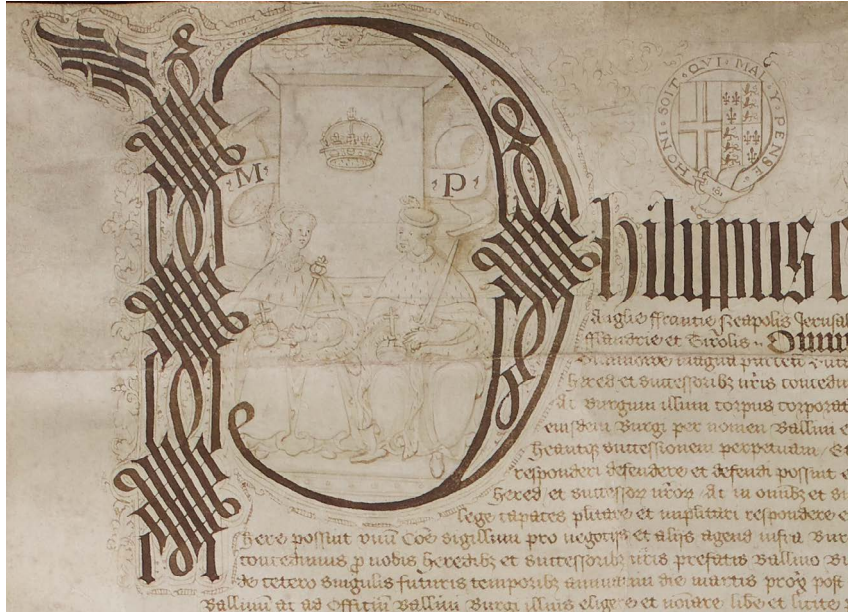 HONI · SOIT · QVI · MAL · Y · PENSE
· M · · P ·
Philippus
Anglie ffrancie Neapolis Jerusal
fflandrie et Tirolis · Omni
hered et successorib3 nr̄is
Ac Burgum illum corpus corporat
eiusdem Burgi per nomen Ballivi e
successionem perpetuam Et
responderi defendere et defendi possint e
Hered et successor nr̄or Ac in om̄ib3 et si
lege capaces plitare et implitari respondere e
here possint vnū Cōe sigillum pro negotijs et alijs agend infra Bur
concedimus p̱ nobis heredib3 et successorib3 nr̄is prefatis Ballivo Bu
de cetero singulis futuris temporib3 annuatim die martis prox̄ post
Ballivū ac ad Officiū Ballivi Burgi illius eligere et noīare libe et licite